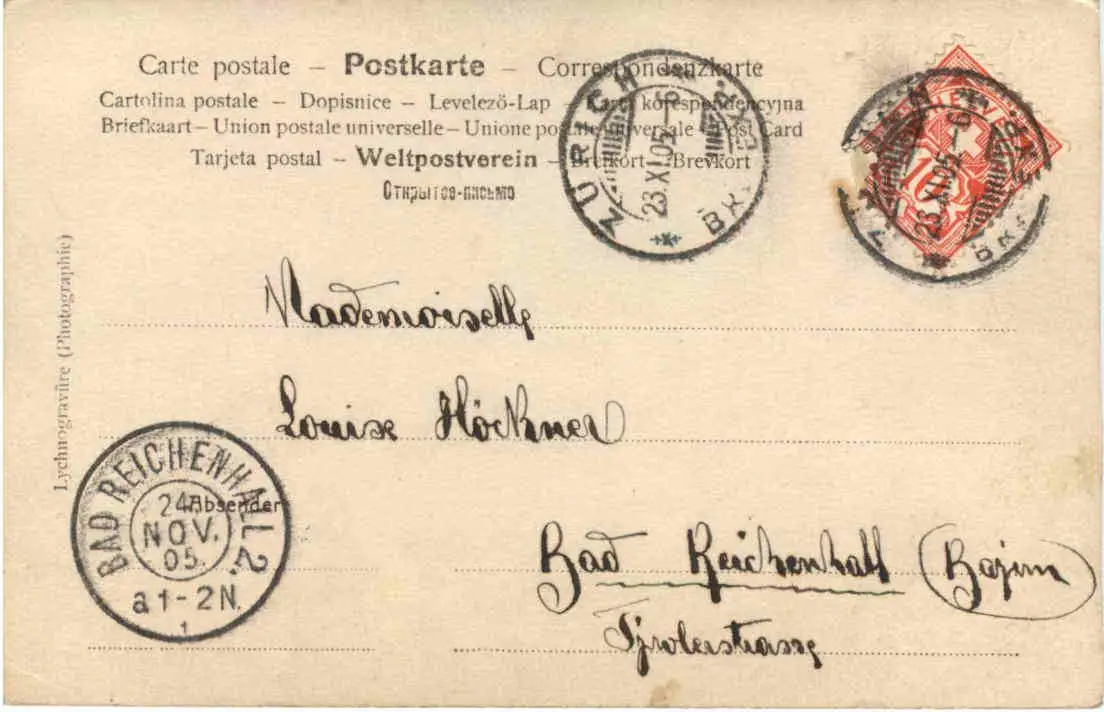 Carte postale – Postkarte – Correspondenzkarte
Cartolina postale – Dopisnice – Levelező-Lap – Karta korespondencyjna
Briefkaart – Union postale universelle – Unione postale universale – Post Card
Tarjeta postal – Weltpostverein – Brefkort – Brevkort
Открытое-письмо
ZÜRICH
23.XI.05.–6
10
23.XI.05.–6
Lychnogravüre (Photographie)
Mademoiselle
Louise Höckner
BAD REICHENHALL 2.
24
NOV.
05.
a 1-2N.
1
Absender
Bad Reichenhall (Bajern)
Tyrolerstrasse